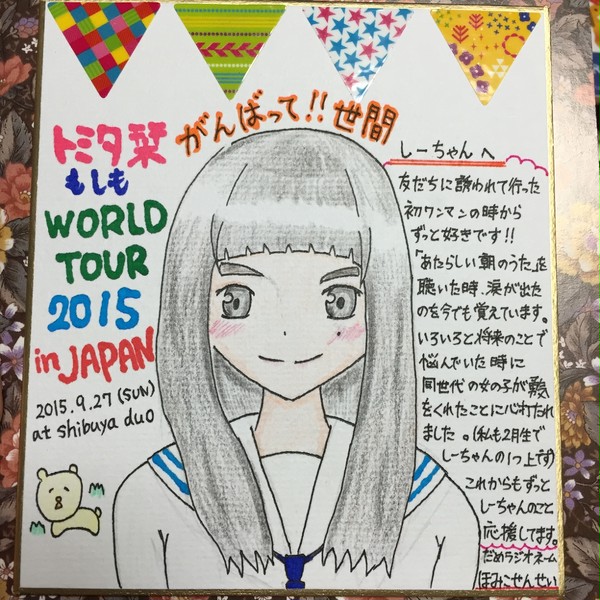 がんばって!!世間
トミタ栞
もしも
WORLD
TOUR
2015
in JAPAN
2015.9.27(SUN)
at shibuya duo
しーちゃんへ
友だちに誘われて行った
初ワンマンの時から
ずっと好きです!!
「あたらしい朝のうた」を
聴いた時、涙が出た
のを今でも覚えています。
いろいろと将来のことで
悩んでいた時に
同世代の女の子が勇気
をくれたことに心打たれ
ました。(私も2月生で
しーちゃんの1つ上です)
これからもずっと
しーちゃんのこと
応援してます。
だめラジオネーム
ほみこせんせい